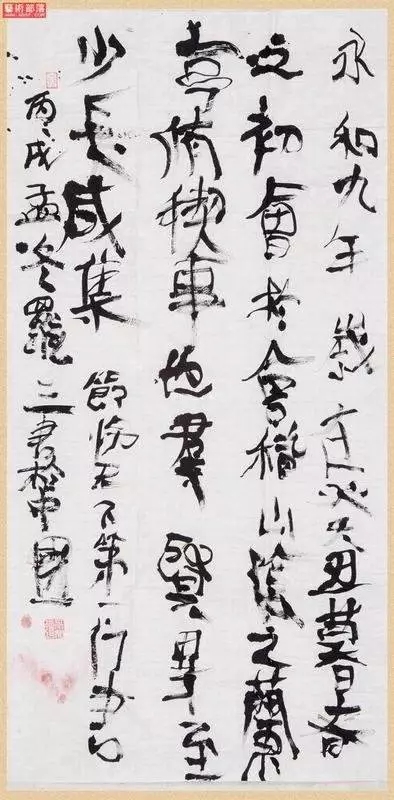 藝術部落
永和九年歲在癸丑暮春
之初會於會稽山陰之蘭
亭脩禊事也羣賢畢至
少長咸集 節臨天下第一行書
丙戌孟冬